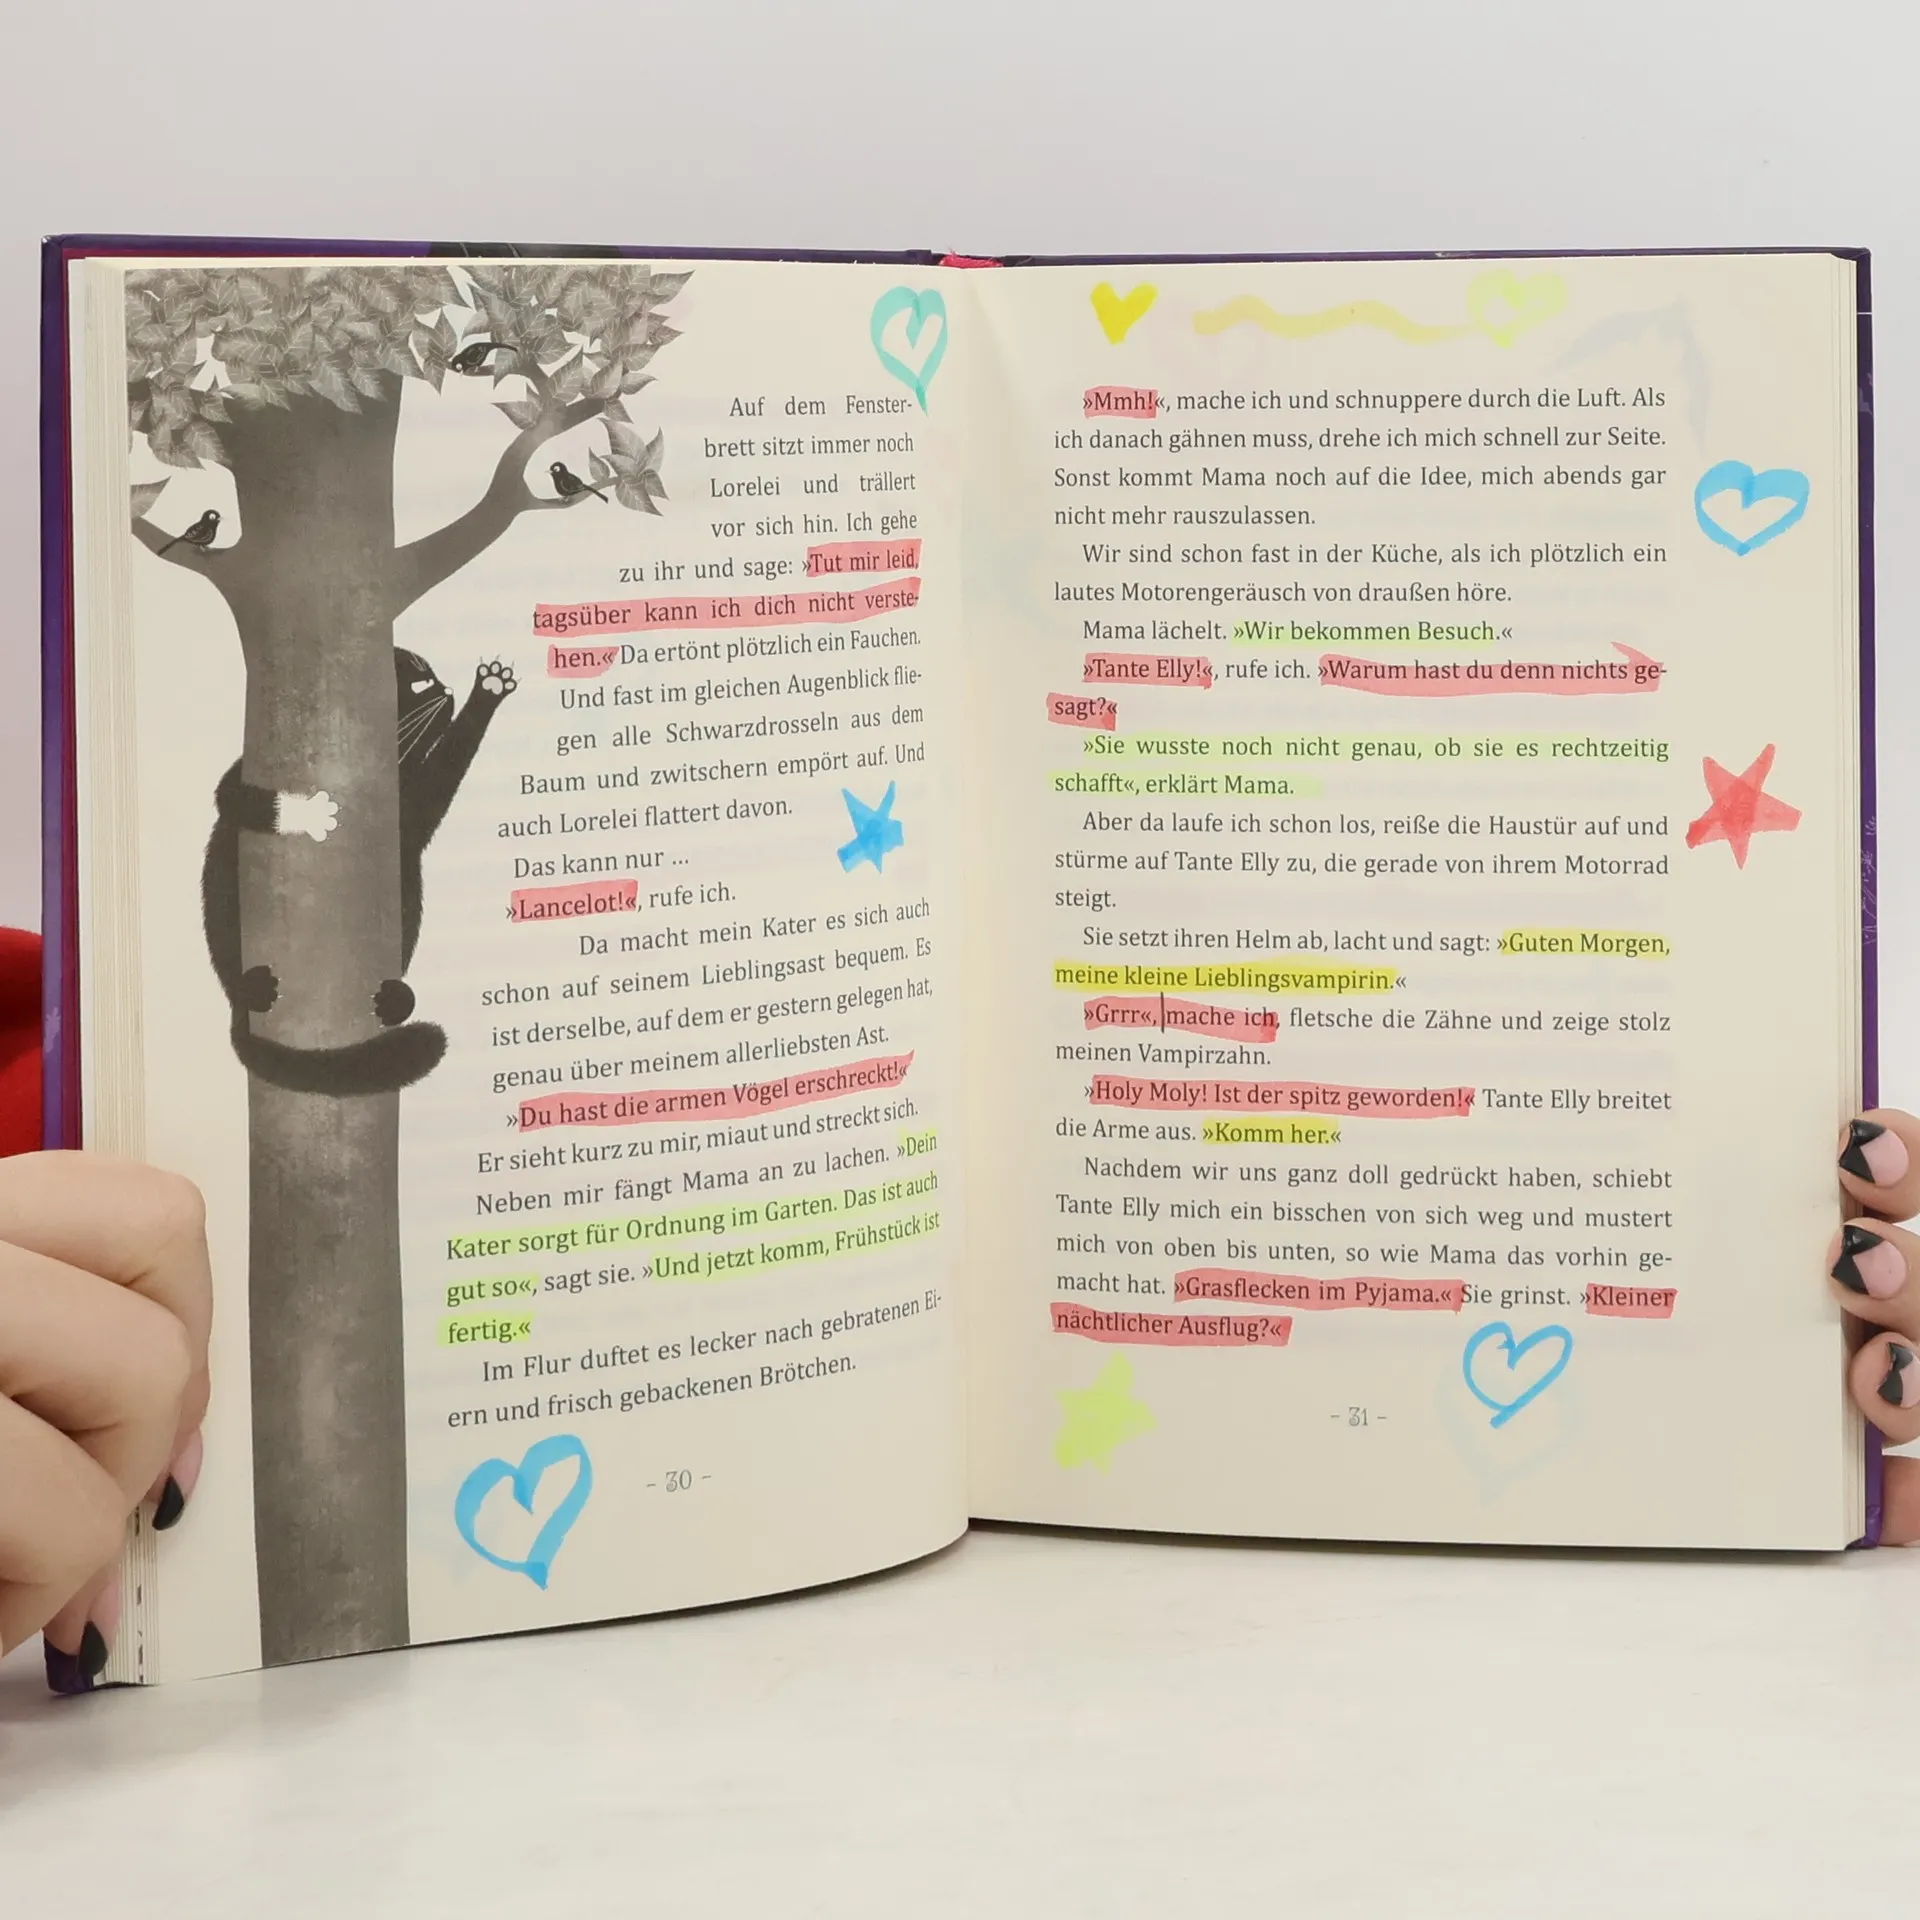 Auf dem Fenster-
brett sitzt immer noch
Lorelei und trällert
vor sich hin. Ich gehe
zu ihr und sage: »Tut mir leid,
tagsüber kann ich dich nicht verste-
hen.« Da ertönt plötzlich ein Fauchen.
Und fast im gleichen Augenblick flie-
gen alle Schwarzdrosseln aus dem
Baum und zwitschern empört auf. Und
auch Lorelei flattert davon.
Das kann nur ...
»Lancelot!«, rufe ich.
Da macht mein Kater es sich auch
schon auf seinem Lieblingsast bequem. Es
ist derselbe, auf dem er gestern gelegen hat,
genau über meinem allerliebsten Ast.
»Du hast die armen Vögel erschreckt!«
Er sieht kurz zu mir, miaut und streckt sich.
Neben mir fängt Mama an zu lachen. »Dein
Kater sorgt für Ordnung im Garten. Das ist auch
gut so«, sagt sie. »Und jetzt komm, Frühstück ist
fertig.«
Im Flur duftet es lecker nach gebratenen Ei-
ern und frisch gebackenen Brötchen.
- 30 -
»Mmh!«, mache ich und schnuppere durch die Luft. Als
ich danach gähnen muss, drehe ich mich schnell zur Seite.
Sonst kommt Mama noch auf die Idee, mich abends gar
nicht mehr rauszulassen.
Wir sind schon fast in der Küche, als ich plötzlich ein
lautes Motorengeräusch von draußen höre.
Mama lächelt. »Wir bekommen Besuch.«
»Tante Elly!«, rufe ich. »Warum hast du denn nichts ge-
sagt?«
»Sie wusste noch nicht genau, ob sie es rechtzeitig
schafft«, erklärt Mama.
Aber da laufe ich schon los, reiße die Haustür auf und
stürme auf Tante Elly zu, die gerade von ihrem Motorrad
steigt.
Sie setzt ihren Helm ab, lacht und sagt: »Guten Morgen,
meine kleine Lieblingsvampirin.«
»Grrr«, mache ich, fletsche die Zähne und zeige stolz
meinen Vampirzahn.
»Holy Moly! Ist der spitz geworden!« Tante Elly breitet
die Arme aus. »Komm her.«
Nachdem wir uns ganz doll gedrückt haben, schiebt
Tante Elly mich ein bisschen von sich weg und mustert
mich von oben bis unten, so wie Mama das vorhin ge-
macht hat. »Grasflecken im Pyjama.« Sie grinst. »Kleiner
nächtlicher Ausflug?«
- 31 -